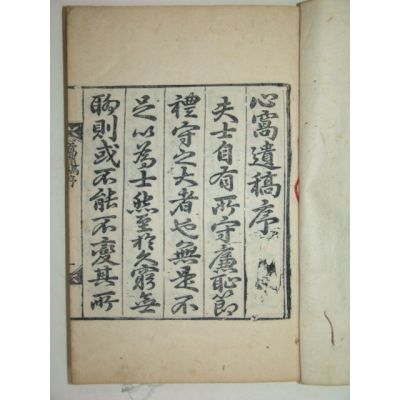 心窩遺稿序
夫士自有所守廉恥節
禮守之大者也無是不
足以為士然至於久窮無
聊則或不能不變其所